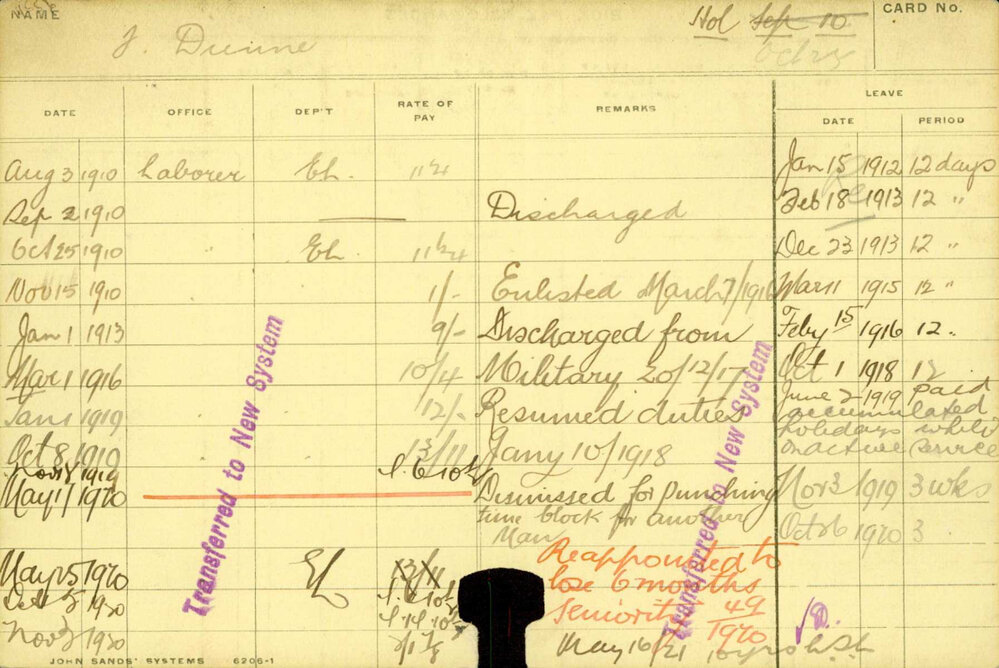 NAME
J. Dunne
Hol Sep 10
CARD No.
LEAVE
DATE OFFICE DEP'T RATE OF PAY REMARKS DATE PERIOD
Aug 3 1910 Laborer Eh. Jan 15 1912 12 days
Sep 2 1910 Discharged Feb 18 1913 12 "
Oct 25 1910 " Eh. Dec 23 1913 12 "
Nov 15 1910 1/- Enlisted March 7/1916 Mar 11 1915 12 "
Jan 1 1913 9/- Discharged from Feby 15 1916 12 "
Mar 1 1916 10/4 Military 20/12/17 Oct 1 1918 12
Jan 1 1919 12/- Resumed duties June 2 1919 paid
accumulated
holidays while
on active service
Oct 8 1919 13/11 Jany 10/1918
Nov 8 1919
May 1/1920 Dismissed for punching Nov 3 1919 3 wks
time block for another
Man Oct 6 1920 3
May 25 1920 El 13/11 Reappointed to
lose 6 months
seniority 49/1920
Nov 1920 May 16/21
Transferred to New System
Transferred to New System
JOHN SANDS' SYSTEMS 6206-1